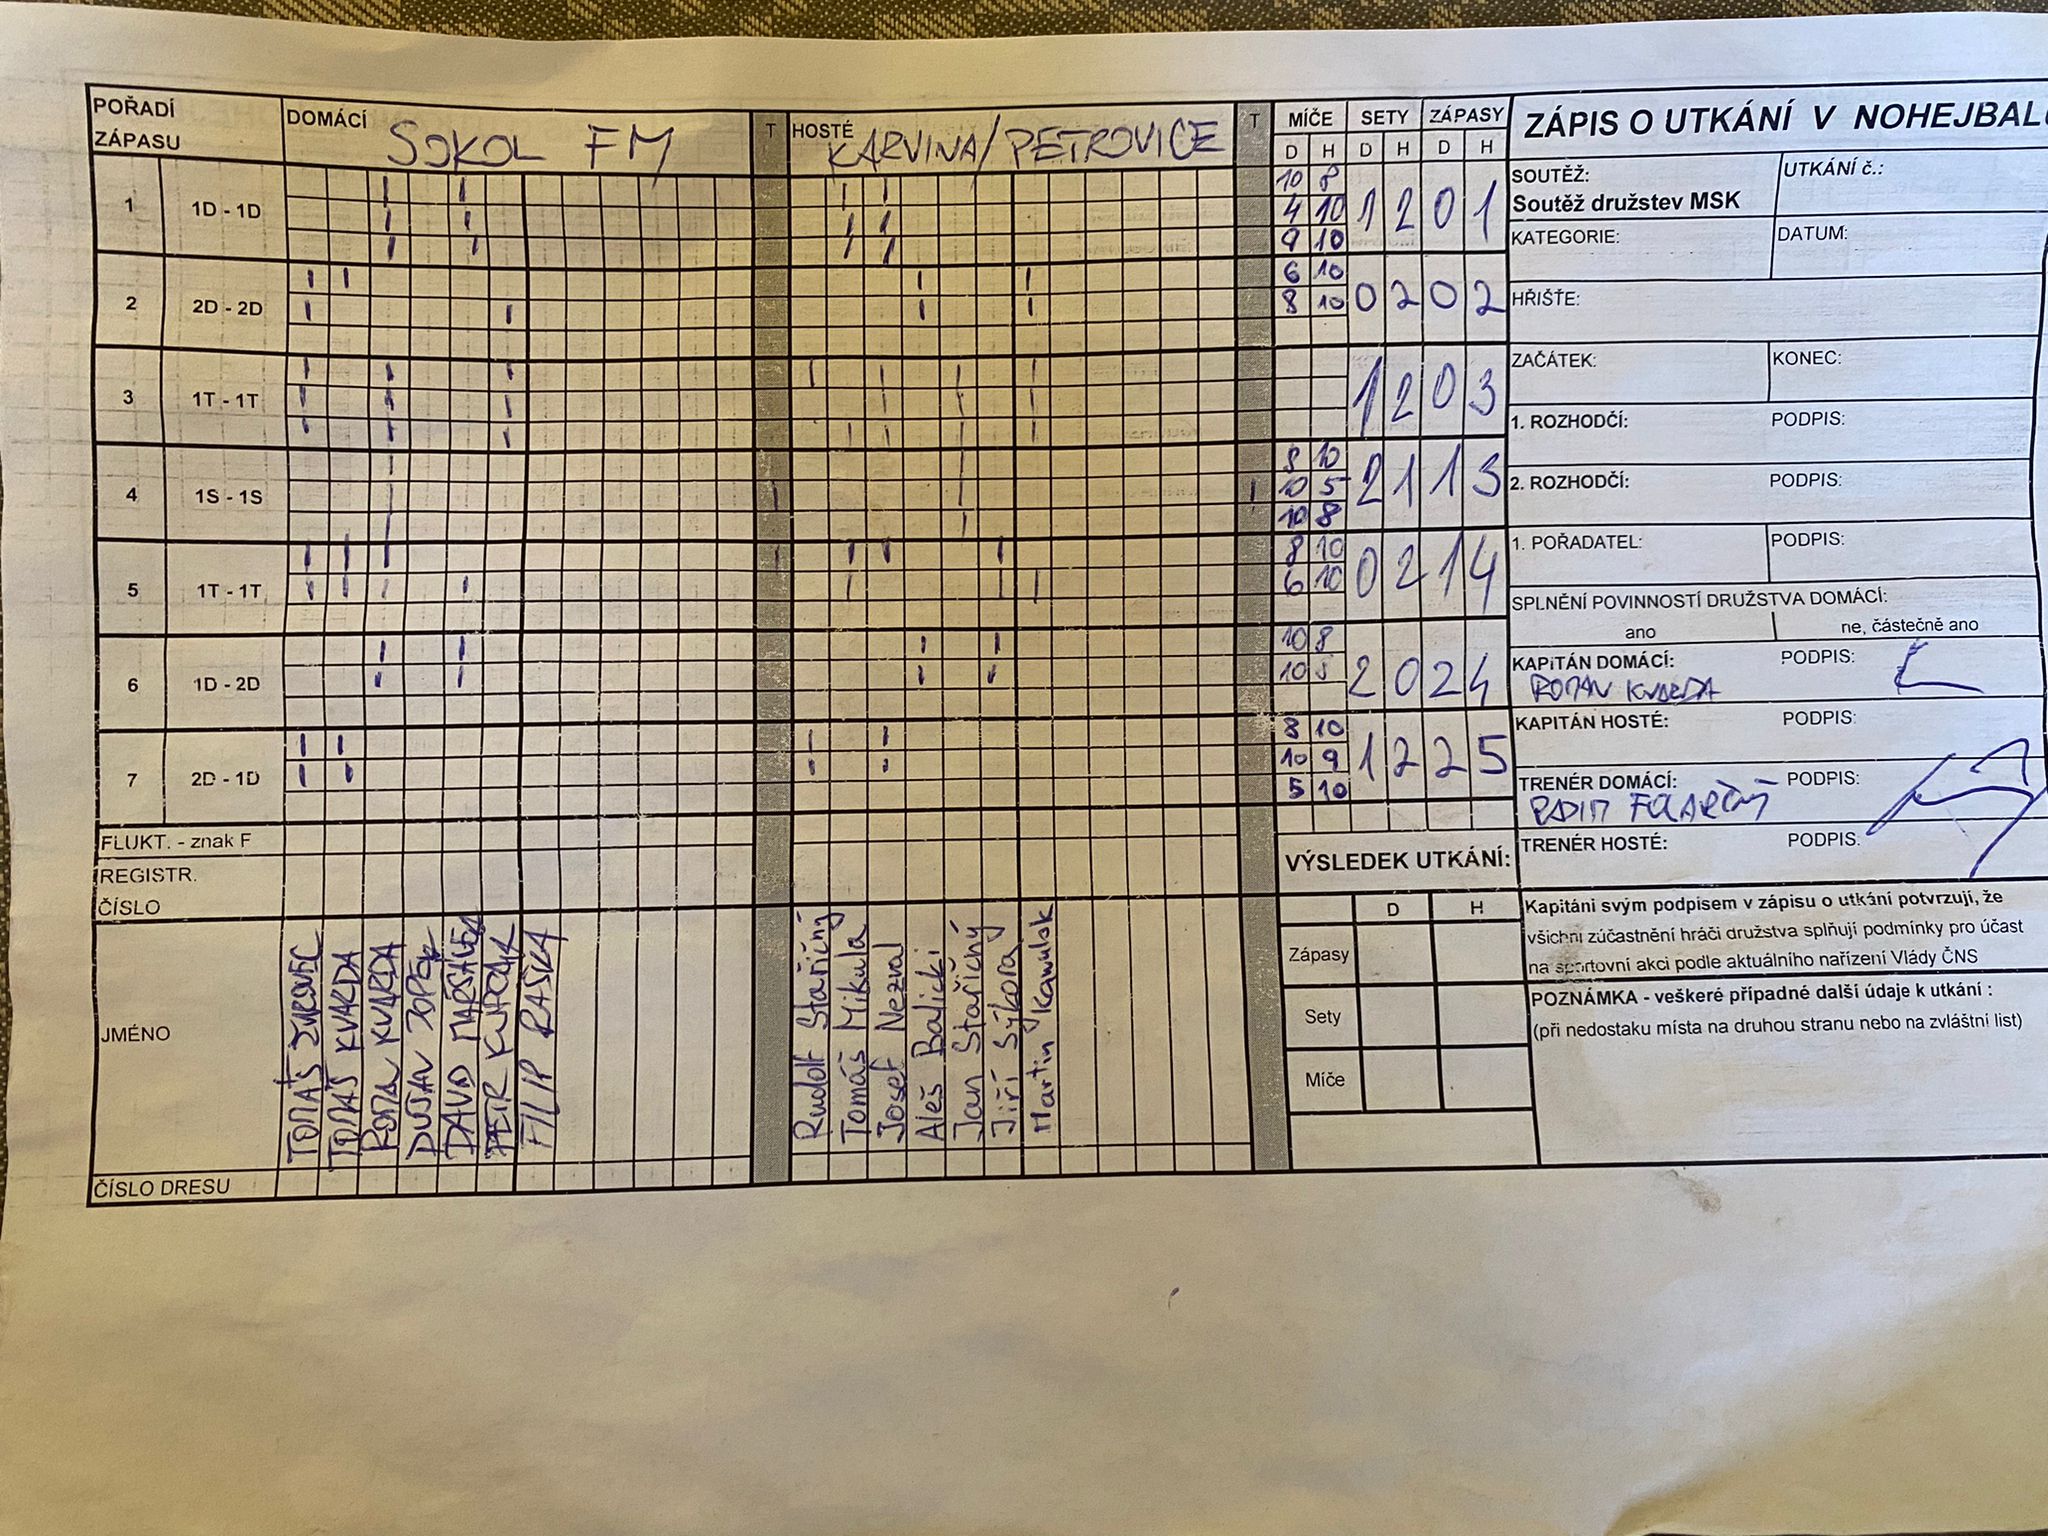 POŘADÍ ZÁPASU DOMÁCÍ SOKOL FM T HOSTÉ KARVINA/PETROVICE T MÍČE SETY ZÁPASY
D H D H D H
1 1D - 1D 10 8 1 2 0 1
4 10
9 10
2 2D - 2D 6 10 0 2 0 2
8 10
3 1T - 1T 1 2 0 3
4 1S - 1S 8 10 2 1 1 3
10 5
10 8
5 1T - 1T 8 10 0 2 1 4
6 10
6 1D - 2D 10 8 2 0 2 4
10 5
7 2D - 1D 8 10 1 2 2 5
10 9
5 10
FLUKT. - znak F
REGISTR.
ČÍSLO
JMÉNO
TOMÁŠ
TOMÁŠ KVARDA
ROMAN KVARDA
DUŠAN
DAVID
PETR
FILIP RAŠKA
Rudolf Stařičný
Tomáš Mikula
Josef Nezval
Aleš Balicki
Jan Stařičný
Jiří Sýkora
Martin Kawulok
ČÍSLO DRESU
VÝSLEDEK UTKÁNÍ:
D H
Zápasy
Sety
Míče
ZÁPIS O UTKÁNÍ V NOHEJBALU
SOUTĚŽ: UTKÁNÍ č.:
Soutěž družstev MSK
KATEGORIE: DATUM:
HŘIŠTE:
ZAČÁTEK: KONEC:
1. ROZHODČÍ: PODPIS:
2. ROZHODČÍ: PODPIS:
1. POŘADATEL: PODPIS:
SPLNĚNÍ POVINNOSTÍ DRUŽSTVA DOMÁCÍ:
ano ne, částečně ano
KAPITÁN DOMÁCÍ: PODPIS:
ROMAN KVARDA
KAPITÁN HOSTÉ: PODPIS:
TRENÉR DOMÁCÍ: PODPIS:
RADIM
TRENÉR HOSTÉ: PODPIS:
Kapitáni svým podpisem v zápisu o utkání potvrzují, že
všichni zúčastnění hráči družstva splňují podmínky pro účast
na sportovní akci podle aktuálního nařízení Vlády ČNS
POZNÁMKA - veškeré případné další údaje k utkání :
(při nedostaku místa na druhou stranu nebo na zvláštní list)